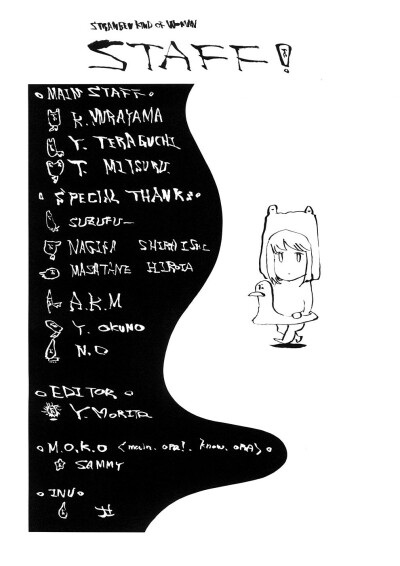 STRANGER KIND OF WOMAN
STAFF!
MAIN STAFF
K. MURAYAMA
Y. TERAGUCHI
T. MITSURU.
SPECIAL THANKS
SUZUFU—
NAGISA
MASATANE HIROTA
A.K.M
Y. OKUNO
N.O
EDITOR
Y. MORITA
M.O.K.O <main. OPA!. know. OPA>
SAMMY
INU